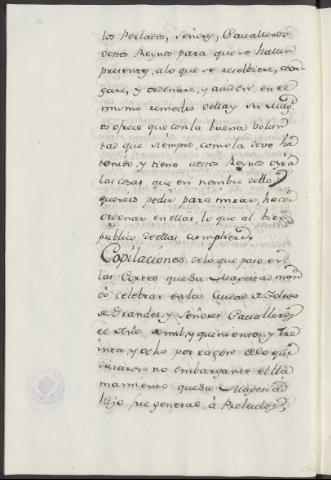 los Perlados, Señores, Cavalleros
destos Reynos para que se hallen
presentes, alo que se resolbiere, otor
gare, y ordenare, y anden en el
mismo remedio dellas y su Mag.d
ofrece que con la buena Volun
tad que siempre, como la deve ha
tenido, y tiene aestos Reynos oyra
las cosas que en nombre dellos
quereis pedir para mirar, hacer
ordenar en ellas, lo que al bien
publico dellas cumpliere.
Copilaciones delo que paso en
las Cortes que su Magestad man
dó celebrar en la Ciudad de Toledo
de Grandes, y Señores Cavalleros
el Año de mil, y quinientos, y Tre
inta, y ocho por razon delo que
duraron no embargante el lla
mamiento que su Magestad
hizo fue general à Prelados,